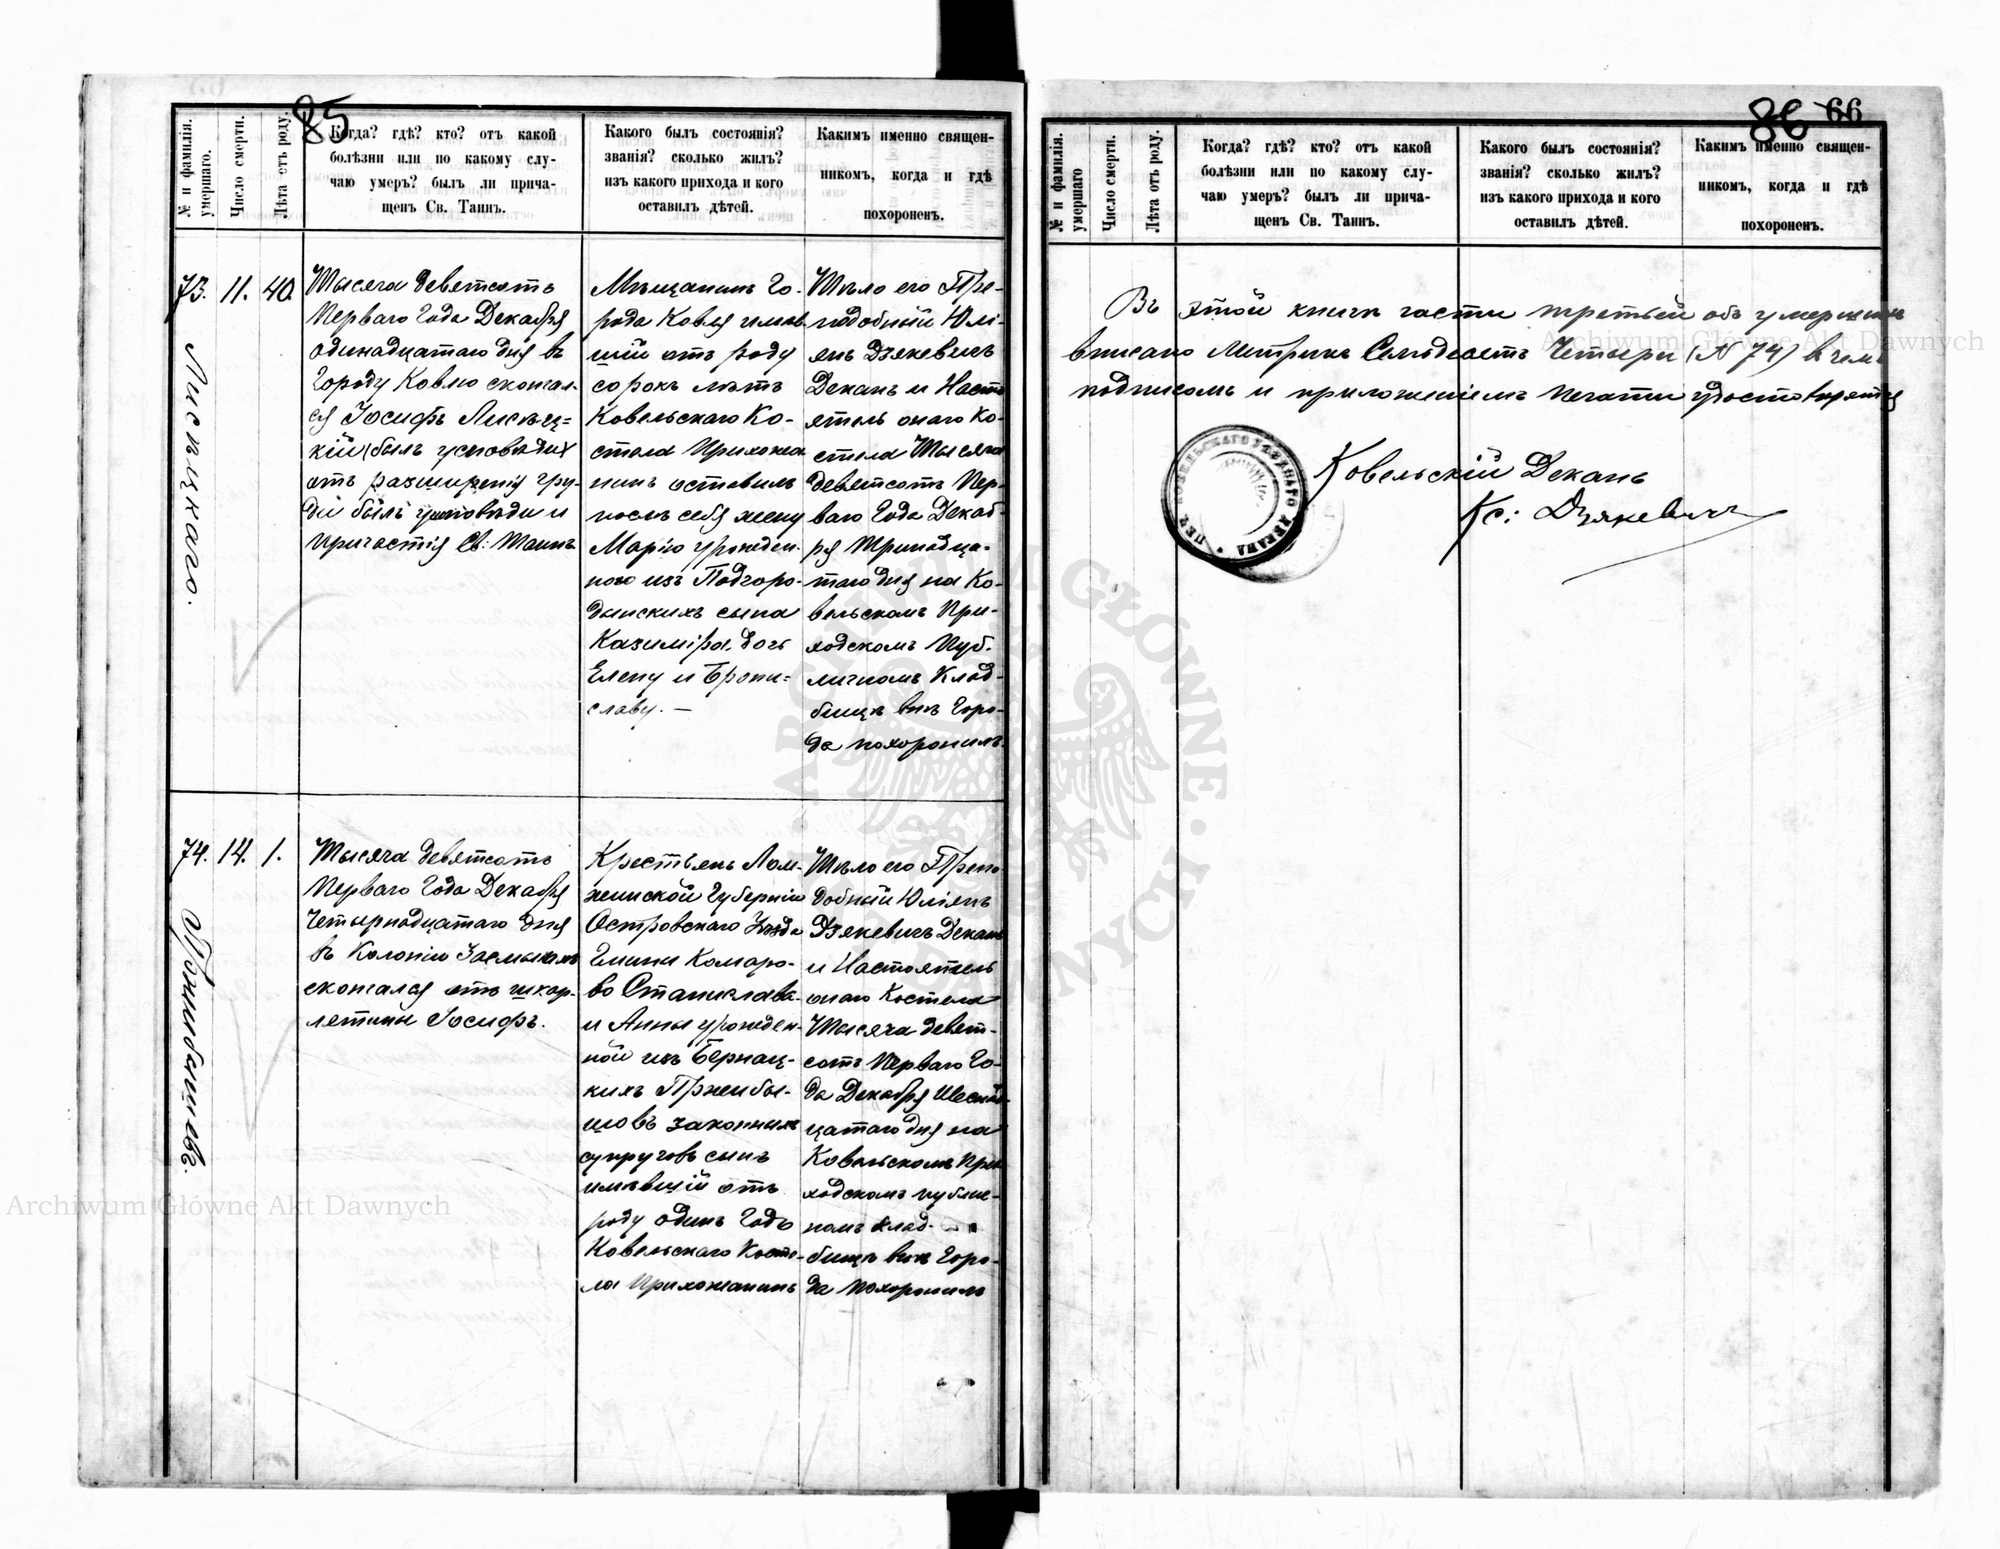 85
№ и фамилія.
умершаго.
Число смерти.
Лѣта отъ роду.
Когда? гдѣ? кто? отъ какой
болѣзни или по какому слу-
чаю умеръ? былъ ли прича-
щенъ Св. Таинъ.
Какого былъ состоянія?
званія? сколько жилъ?
изъ какого прихода и кого
оставилъ дѣтей.
Какимъ именно священ-
никомъ, когда и гдѣ
похороненъ.
73.
Лисѣцкаго.
11.
40.
Тысяча девятсотъ
Перваго Года Декабря
одинадцатаго дня въ
Городу Ковлю скончал-
ся Іосифъ Лисѣц=
кій
отъ разширенія гру-
ди былъ исповѣди и
Причастія Св: Таинъ
Мѣщанинъ Го-
рода Ковля имѣв-
шій отъ роду
сорокъ лѣтъ
Ковельскаго Ко-
стела Прихожа
нинъ оставилъ
послѣ себя жену
Марію урожден-
ною изъ Подгоро-
дынскихъ сына
Казиміра, дочь
Елену и Брони=
славу. —
Тѣло его Пре-
подобный Юлі-
янъ Дзякевичъ
Деканъ и Насто
ятель онаго Ко-
стела Тысяча
девятсотъ Пер-
ваго Года Декаб-
ря Тринадца-
таго дня на Ко-
вельскомъ При-
ходскомъ Пуб-
личномъ Клад-
бищѣ внѣ Горо-
да похоронилъ.
74.
14.
1.
Тысяча девятсотъ
Перваго Года Декабря
Четырнадцатаго дня
въ Колоніи
скончался отъ шкар-
летины Іосифъ.
Крестьянъ Лом-
жинской Губерніи
Островскаго Уѣзда
Гмины Комаро-
во Станислава
и Анны урожден-
ной изъ Бернац-
кихъ Пржибы-
шовъ законныхъ
супруговъ сынъ
имѣвшій отъ
роду одинъ Годъ
Ковельскаго Косте-
ла Прихожанинъ
Тѣло его Препо
добный Юліянъ
Дзякевичъ Деканъ
и Настоятель
онаго Костела
Тысяча девят-
сотъ Перваго Го-
да Декабря Шеснад-
цатаго дня на
Ковельскомъ При
ходскомъ публич-
номъ Клад-
бищѣ внѣ Горо-
да похоронилъ
86 66
№ и фамилія.
умершаго
Число смерти.
Лѣта отъ роду.
Когда? гдѣ? кто? отъ какой
болѣзни или по какому слу-
чаю умеръ? былъ ли прича-
щенъ Св. Таинъ.
Какого былъ состоянія?
званія? сколько жилъ?
изъ какого прихода и кого
оставилъ дѣтей.
Какимъ именно священ-
никомъ, когда и гдѣ
похороненъ.
Въ этой книгѣ части третьей объ умершихъ
вписано Метрикъ Семьдесятъ Четыри (№ 74) въ чемъ
подписомъ и приложеніемъ Печати удостовѣряется
Ковельскій Деканъ
Кс: Дзякевичъ
Archiwum Główne Akt Dawnych
Archiwum Główne Akt Dawnych